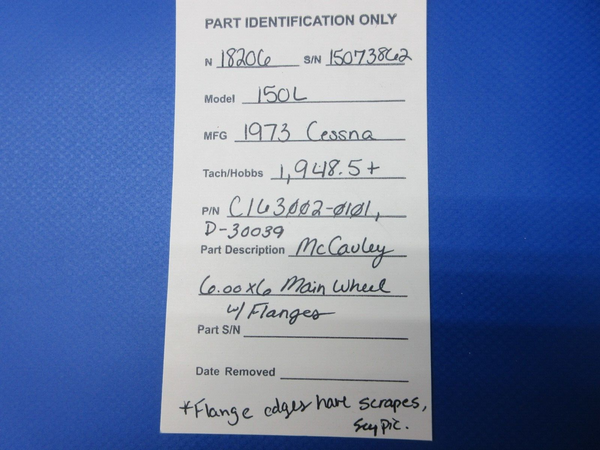 PART IDENTIFICATION ONLY
N 18206 S/N 15073862
Model 150L
MFG 1973 Cessna
Tach/Hobbs 1,948.5+
P/N C163002-0101,
D-30039
Part Description McCauley
6.00x6 Main Wheel
w/ Flanges
Part S/N
Date Removed
*Flange edges have scrapes,
see pic.